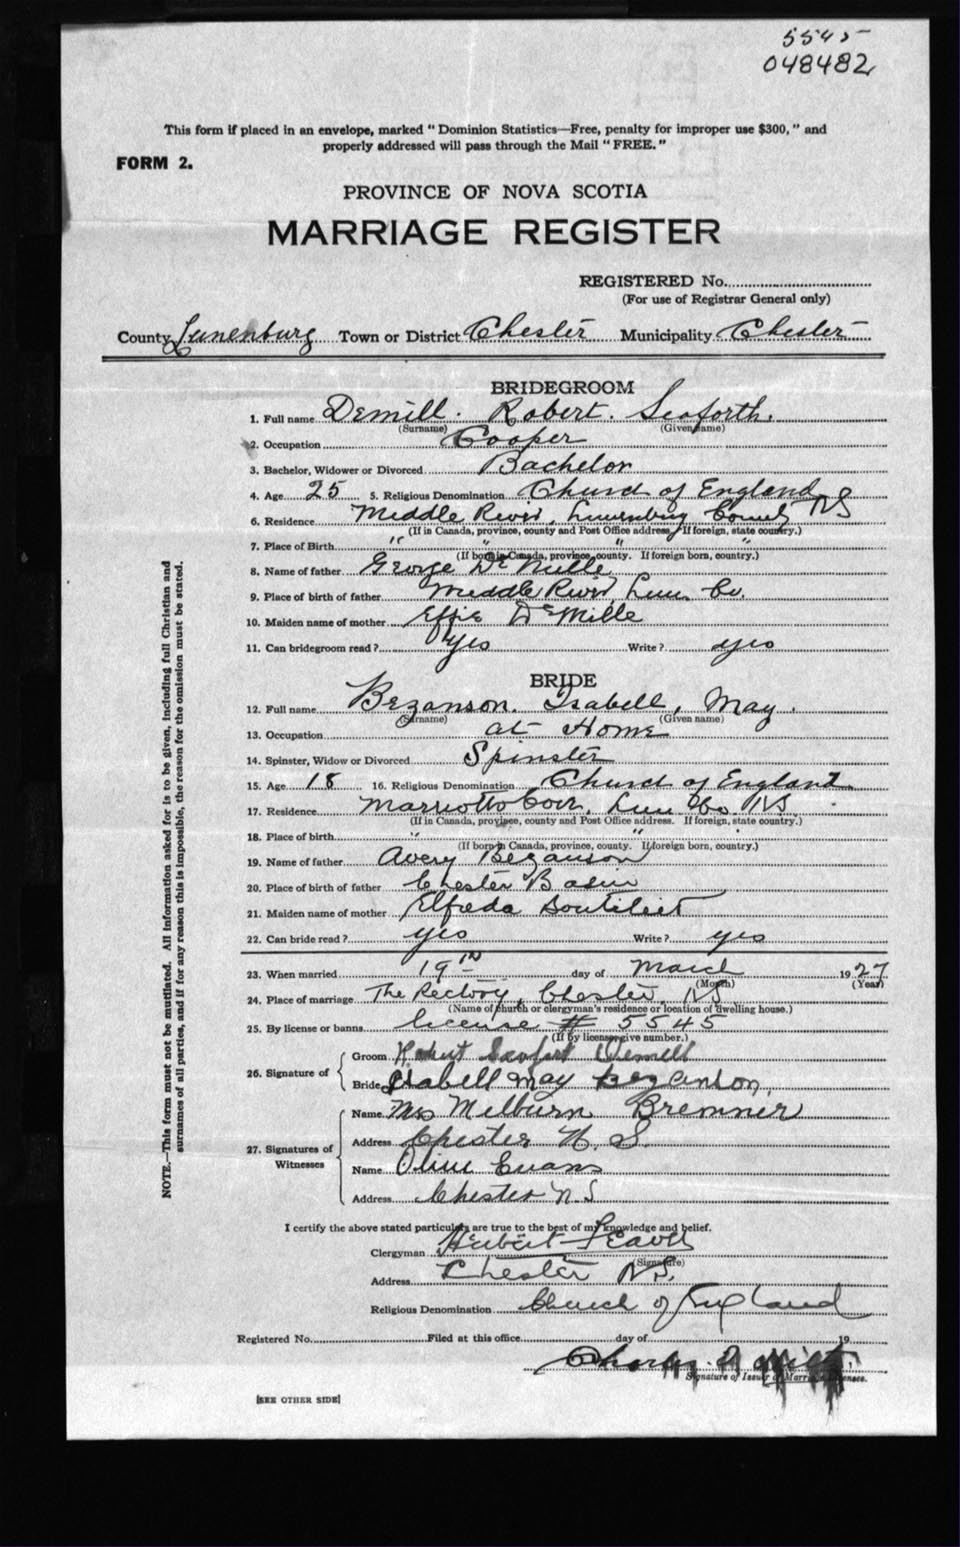 5545
048482
This form if placed in an envelope, marked " Dominion Statistics—Free, penalty for improper use $300, " and
properly addressed will pass through the Mail " FREE. "
FORM 2.
PROVINCE OF NOVA SCOTIA
MARRIAGE REGISTER
REGISTERED No.
(For use of Registrar General only)
County Lunenburg Town or District Chester Municipality Chester
BRIDEGROOM
1. Full name Demill. Robert. Seaforth.
(Surname) (Given name)
2. Occupation Cooper
3. Bachelor, Widower or Divorced Bachelor
4. Age 25 5. Religious Denomination Church of England
6. Residence Middle River, Lunenburg County NS
(If in Canada, province, county and Post Office address. If foreign, state country.)
7. Place of Birth " " " "
(If born in Canada, province, county. If foreign born, country.)
8. Name of father George De Mille
9. Place of birth of father Middle River, Lun. Co.
10. Maiden name of mother Effie De Mille
11. Can bridegroom read? Yes Write? yes
BRIDE
12. Full name Bezanson. Isabell, May.
(Surname) (Given name)
13. Occupation at Home
14. Spinster, Widow or Divorced Spinster
15. Age 18 16. Religious Denomination Church of England
17. Residence Marriotts Cove, Lun Co. NS.
(If in Canada, province, county and Post Office address. If foreign, state country.)
18. Place of birth " " "
(If born in Canada, province, county. If foreign born, country.)
19. Name of father Avery Bezanson
20. Place of birth of father Chester Basin
21. Maiden name of mother Elfreda
22. Can bride read? yes Write? yes
23. When married 19th day of March 1927
(Month) (Year)
24. Place of marriage The Rectory, Chester, NS
(Name of church or clergyman's residence or location of dwelling house.)
25. By license or banns license # 5545
(If by license, give number.)
26. Signature of
Groom Robert Demill
Bride Isabell May Bezanson,
27. Signatures of Witnesses
Name Mrs Melburn Bremner
Address Chester N. S.
Name Olive Evans
Address Chester N.S
I certify the above stated particulars are true to the best of my knowledge and belief.
Clergyman Herbert
(Signature)
Address Chester NS.
Religious Denomination Church of England
Registered No. Filed at this office day of 19
Charles
Signature of Issuer of Marriage Licenses.
[SEE OTHER SIDE]
NOTE.—This form must not be mutilated. All information asked for is to be given, including full Christian and
surnames of all parties, and if for any reason this is impossible, the reason for the omission must be stated.